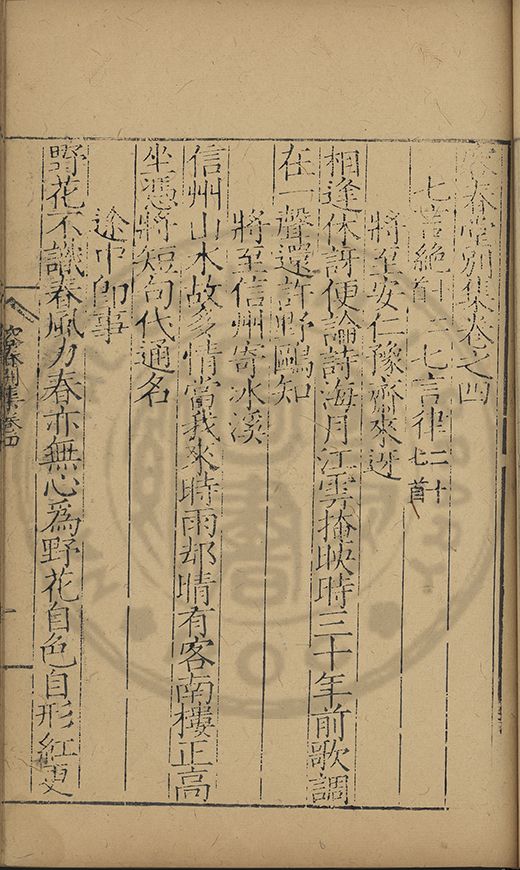 春堂別集卷之四
七言絶 首 七言律二十七首
將至安仁豫齋來迓
相逢休訝便論詩海月江雲掩映時三十年前歌調
在一聲還許野鷗知
將至信州寄水溪
信州山水故多情當我來時雨却晴有客南樓正高
坐憑將短句代通名
途中即事
野花不識春風力春亦無心爲野花自色自形紅更
春別集卷四